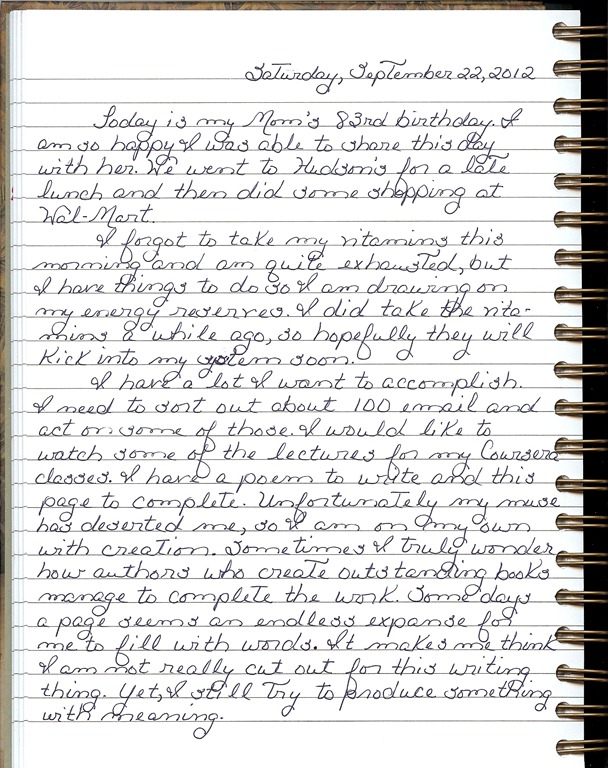 Saturday, September 22, 2012
Today is my Mom's 83rd birthday. I
am so happy I was able to share this day
with her. We went to Hudson's for a late
lunch and then did some shopping at
Wal-Mart.
I forgot to take my vitamins this
morning and am quite exhausted, but
I have things to do so I am drawing on
my energy reserves. I did take the vita-
mins a while ago, so hopefully they will
kick into my system soon.
I have a lot I want to accomplish.
I need to sort out about 100 email and
act on some of those. I would like to
watch some of the lectures for my Coursera
classes. I have a poem to write and this
page to complete. Unfortunately my muse
has deserted me, so I am on my own
with creation. Sometimes I truly wonder
how authors who create outstanding books
manage to complete the work. Some days
a page seems an endless expanse for
me to fill with words. It makes me think
I am not really cut out for this writing
thing. Yet, I still try to produce something
with meaning.